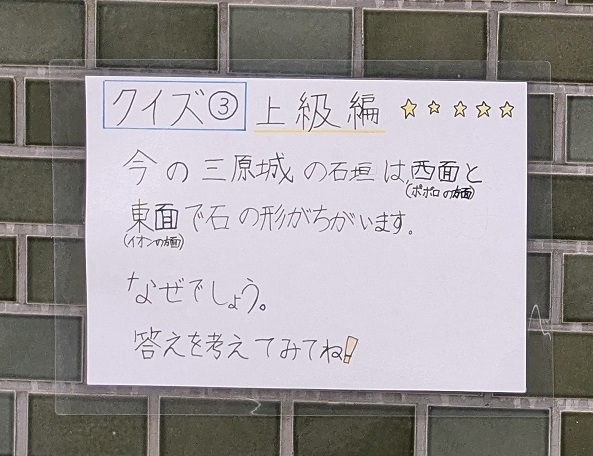 クイズ③ 上級編 ☆☆☆☆☆
今の三原城の石垣は西面と
(ポポロの方面)
東面で石の形がちがいます。
(イオンの方面)
なぜでしょう。
答えを考えてみてね!